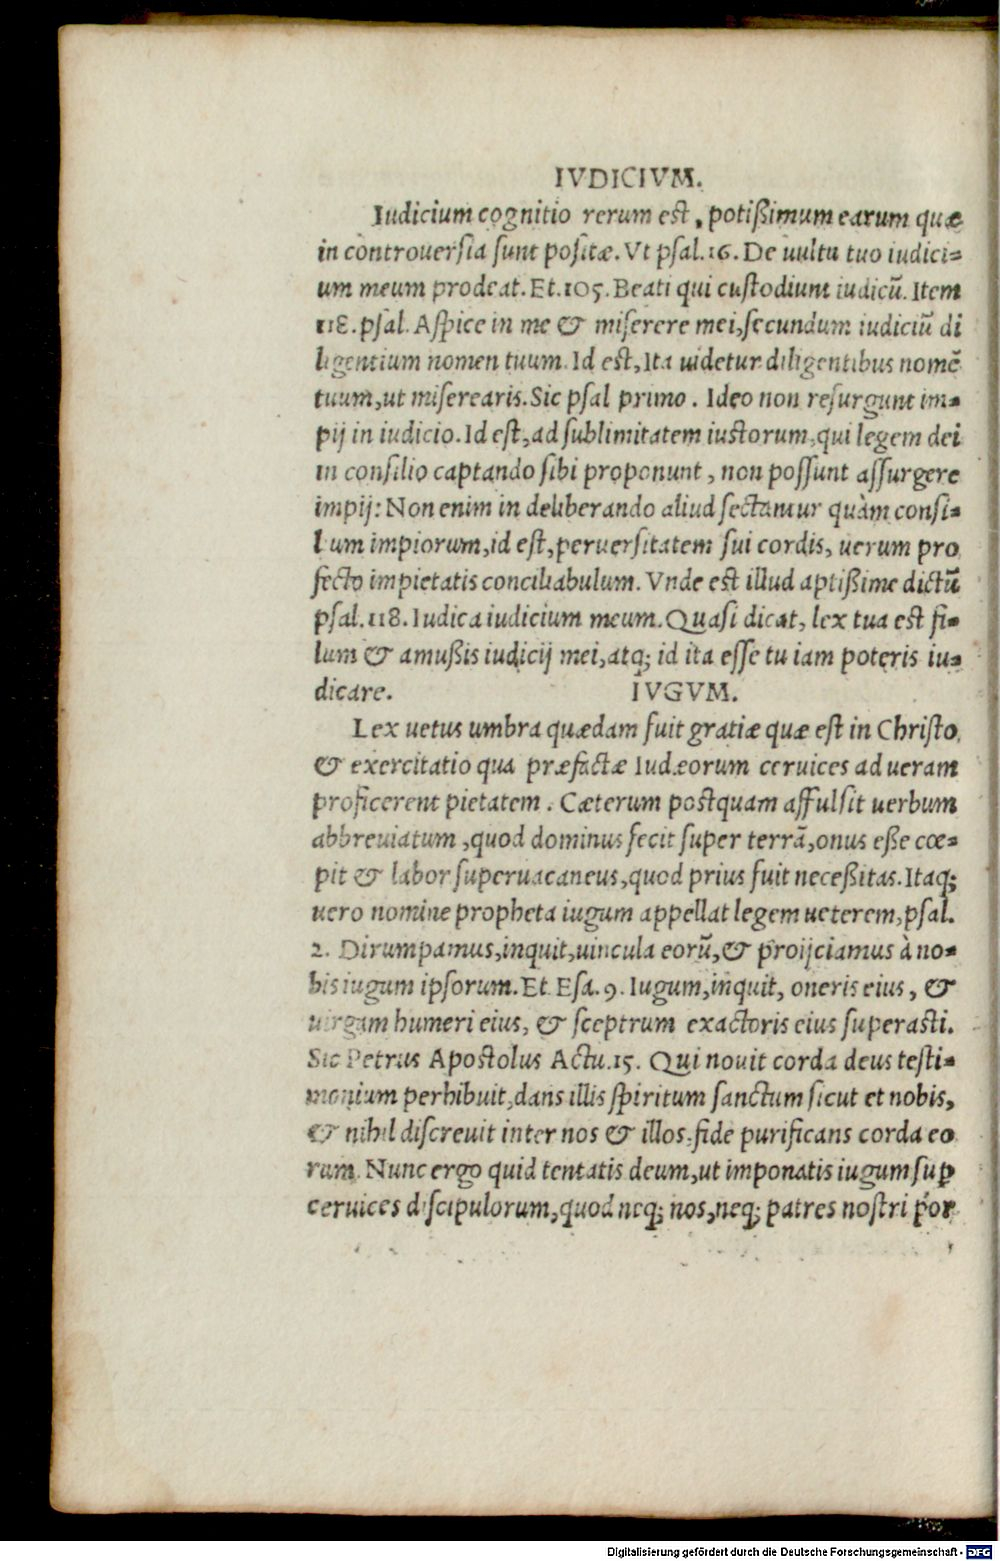 IVDICIVM.
Iudicium cognitio rerum est, potißimum earum quæ
in controuersia sunt positæ. Vt psal. 16. De uultu tuo iudici-
um meum prodeat. Et. 105. Beati qui custodiunt iudicũ. Item
118. psal. Aspice in me & miserere mei, secundum iudiciũ di
ligentium nomen tuum. Id est, Ita uidetur diligentibus nomẽ
tuum, ut miserearis. Sic psal primo. Ideo non resurgunt im-
pij in iudicio. Id est, ad sublimitatem iustorum, qui legem dei
in consilio captando sibi proponunt, non possunt assurgere
impij: Non enim in deliberando aliud sectantur quàm consi-
lium impiorum, id est, peruersitatem sui cordis, uerum pro
fecto impietatis conciliabulum. Vnde est illud aptißime dictũ
psal. 118. Iudica iudicium meum. Quasi dicat, lex tua est fi-
lum & amußis iudicij mei, atq; id ita esse tu iam poteris iu-
dicare. IVGVM.
Lex uetus umbra quædam fuit gratiæ quæ est in Christo,
& exercitatio qua præfactæ Iudæorum ceruices ad ueram
proficerent pietatem. Cæterum postquam affulsit uerbum
abbreuiatum, quod dominus fecit super terrã, onus eße cœ-
pit & labor superuacaneus, quod prius fuit neceßitas. Itaq;
uero nomine propheta iugum appellat legem ueterem, psal.
2. Dirumpamus, inquit, uincula eorũ, & proijciamus à no-
bis iugum ipsorum. Et Esa. 9. Iugum, inquit, oneris eius, &
uirgam humeri eius, & sceptrum exactoris eius superasti.
Sic Petrus Apostolus Actu. 15. Qui nouit corda deus testi-
monium perhibuit, dans illis spiritum sanctum sicut et nobis,
& nihil discreuit inter nos & illos, fide purificans corda eo
rum. Nunc ergo quid tentatis deum, ut imponatis iugum suꝑ
ceruices discipulorum, quod neq; nos, neq; patres nostri por
Digitalisierung gefördert durch die Deutsche Forschungsgemeinschaft - DFG